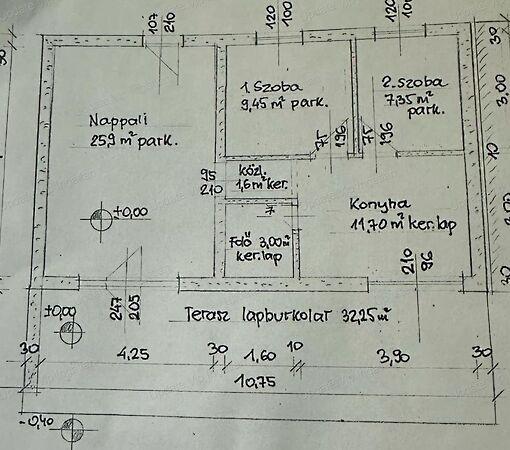 107
210
120
100
120
100
30
30
1. Szoba
9,45 m² park.
2. szoba
7,35 m²
park.
3,00
Nappali
25,9 m² park.
75
196
75
196
10
95
210
közl.
1,6 m² ker.
Konyha
11,70 m² ker.lap
±0,00
7
Fdő 3,00 m²
ker.lap
210
96
30
247
205
±0,00
Terasz lapburkolat 32,25 m²
30
4,25
30
1,60
10
3,90
30
10,75
-0,40